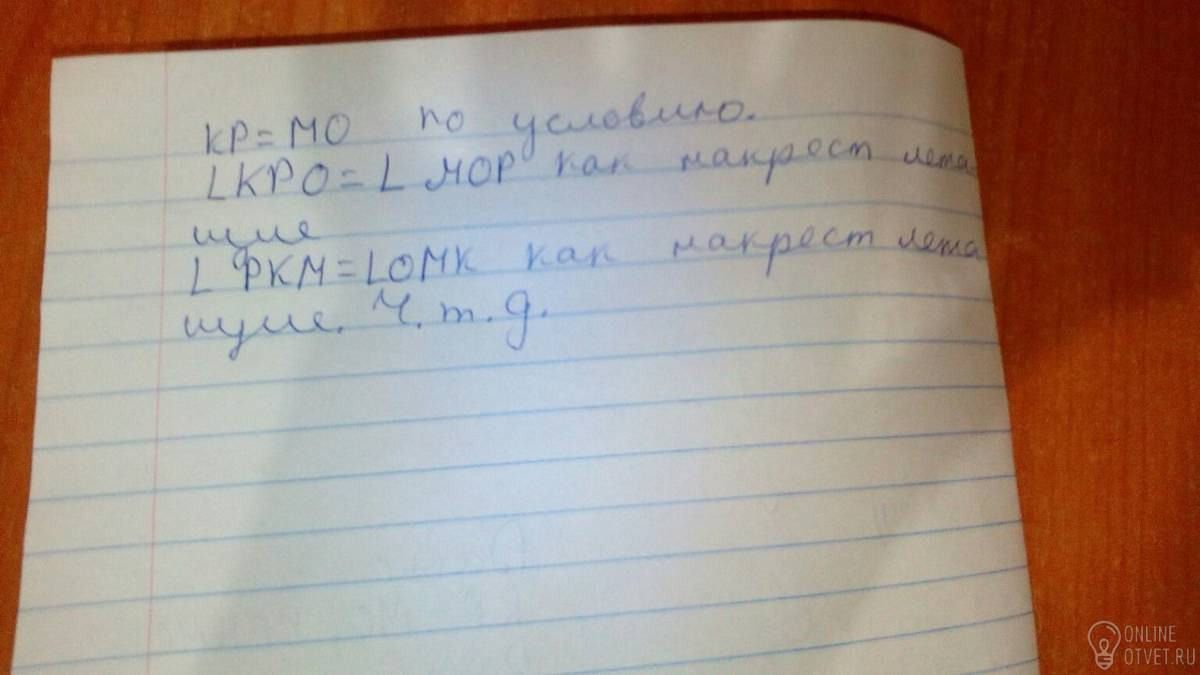 KP=MO по условию.
∠KPO=∠MOP как накрест лежа
щие
∠PKM=∠OMK как накрест лежа
щие. Ч.т.д.
ONLINE
OTVET.RU